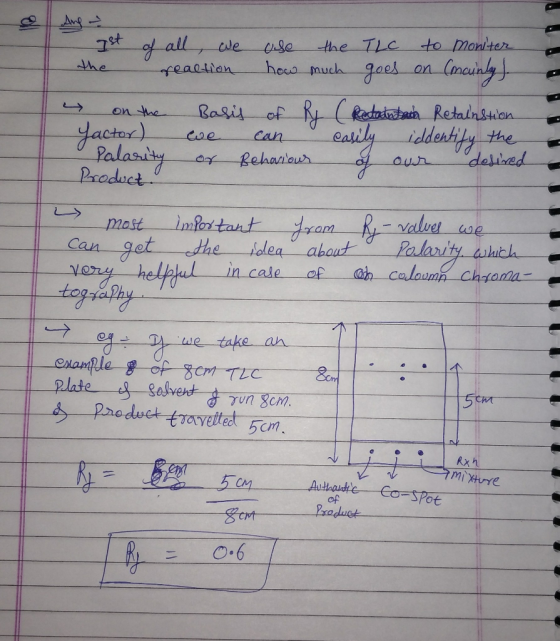 Q Ans :-
Ist of all, we use the TLC to moniter
the reaction how much goes on (mainly).
↳ on the Basis of Rf ( Retainstion
factor) we can easily iddentify the
Palarity or Behaviour of our desired
Product.
↳ most important from Rf-values we
can get the idea about Palarity which
very helpful in case of caloumn chroma-
tography.
→ eg:- If we take an
example of 8cm TLC
Plate & solvent run 8cm.
& Product travelled 5cm.
8cm
5cm
Authentic of Product
Co-Spot
Rxn mixture
Rf = 5cm
8cm
Rf = 0.6